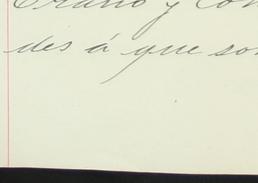 Erario y con
des á que so